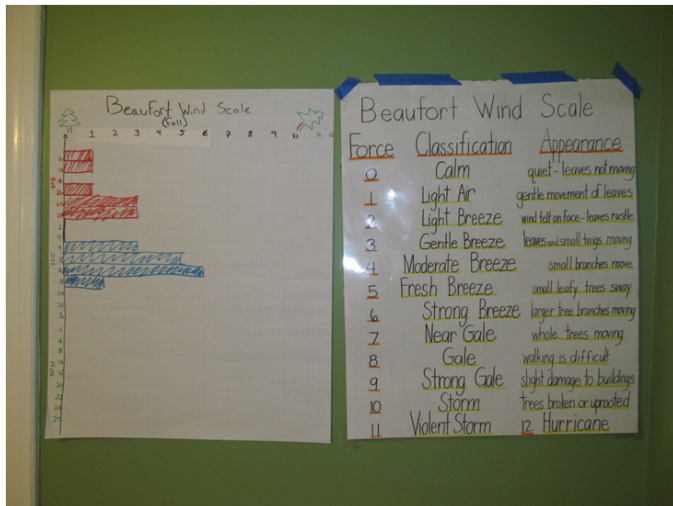 Beaufort Wind Scale
(fall)
1 2 3 4 5 6 7 8 9 10 11 12
Beaufort Wind Scale
Force Classification Appearance
0 Calm quiet - leaves not moving
1 Light Air gentle movement of leaves
2 Light Breeze wind felt on face - leaves rustle
3 Gentle Breeze leaves and small twigs moving
4 Moderate Breeze small branches move
5 Fresh Breeze small leafy trees sway
6 Strong Breeze larger tree branches moving
7 Near Gale whole trees moving
8 Gale walking is difficult
9 Strong Gale slight damage to buildings
10 Storm trees broken or uprooted
11 Violent Storm 12 Hurricane